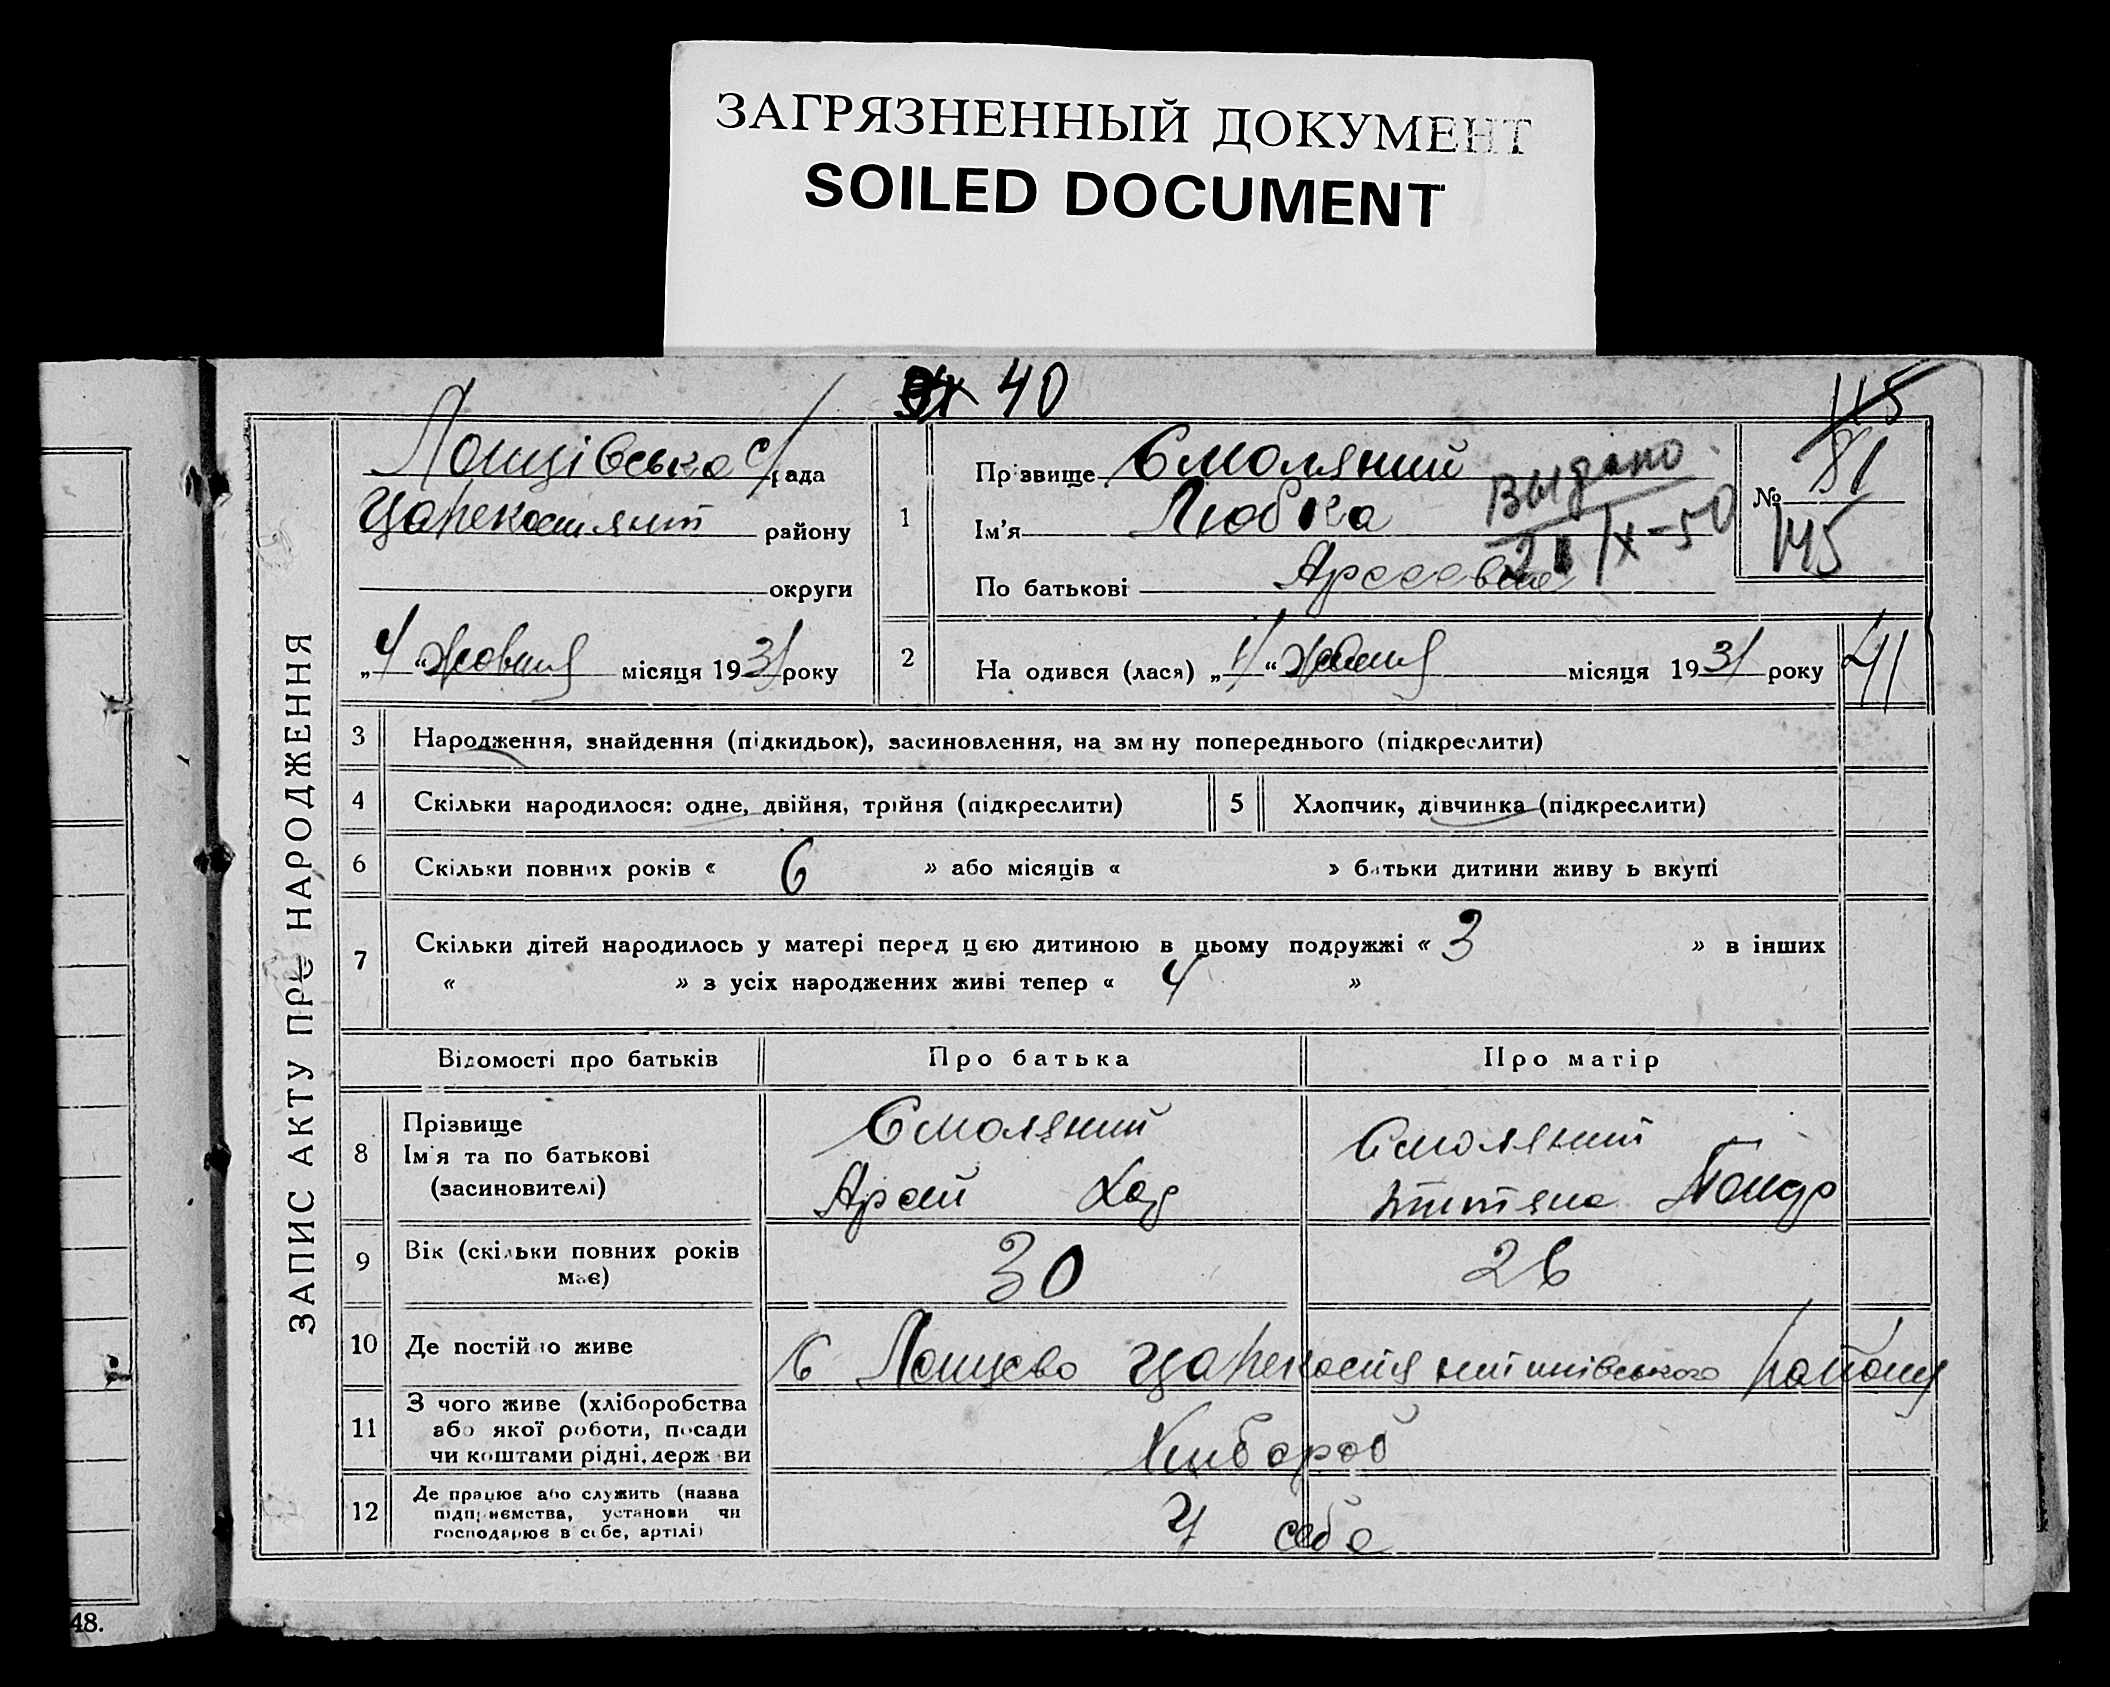 ЗАГРЯЗНЕННЫЙ ДОКУМЕНТ
SOILED DOCUMENT
40
115
81
№
145
41
ЗАПИС АКТУ ПРО НАРОДЖЕННЯ
Лонцівська с/рада
району
округи
„4“ Жовтня місяця 1931 року
1
Прізвище Смоляний
Ім'я Любка
По батькові Арсеевна
Выдано
IX-50
2
На одився (лася) „4“ Жовтня місяця 1931 року
3
Народження, знайдення (підкидьок), засиновлення, на зм ну попереднього (підкреслити)
4
Скільки народилося: одне, двійня, трійня (підкреслити)
5
Хлопчик, дівчинка (підкреслити)
6
Скільки повних років « 6 » або місяців « » батьки дитини живу ь вкупі
7
Скільки дітей народилось у матері перед цією дитиною в цьому подружжі « 3 » в інших
« » з усіх народжених живі тепер « 4 »
Відомості про батьків
Про батька
Про матір
8
Прізвище
Ім'я та по батькові
(засиновителі)
Смоляний
Арсій
Смоляний
9
Вік (скільки повних років
має)
30
26
10
Де постійно живе
с Лонцево район
11
З чого живе (хліборобства
або якої роботи, посади
чи коштами рідні, держ ви
Хлібороб
12
Де працює або служить (назва
підприємства, установи чи
господарює в себе, артілі)
У себе
48.